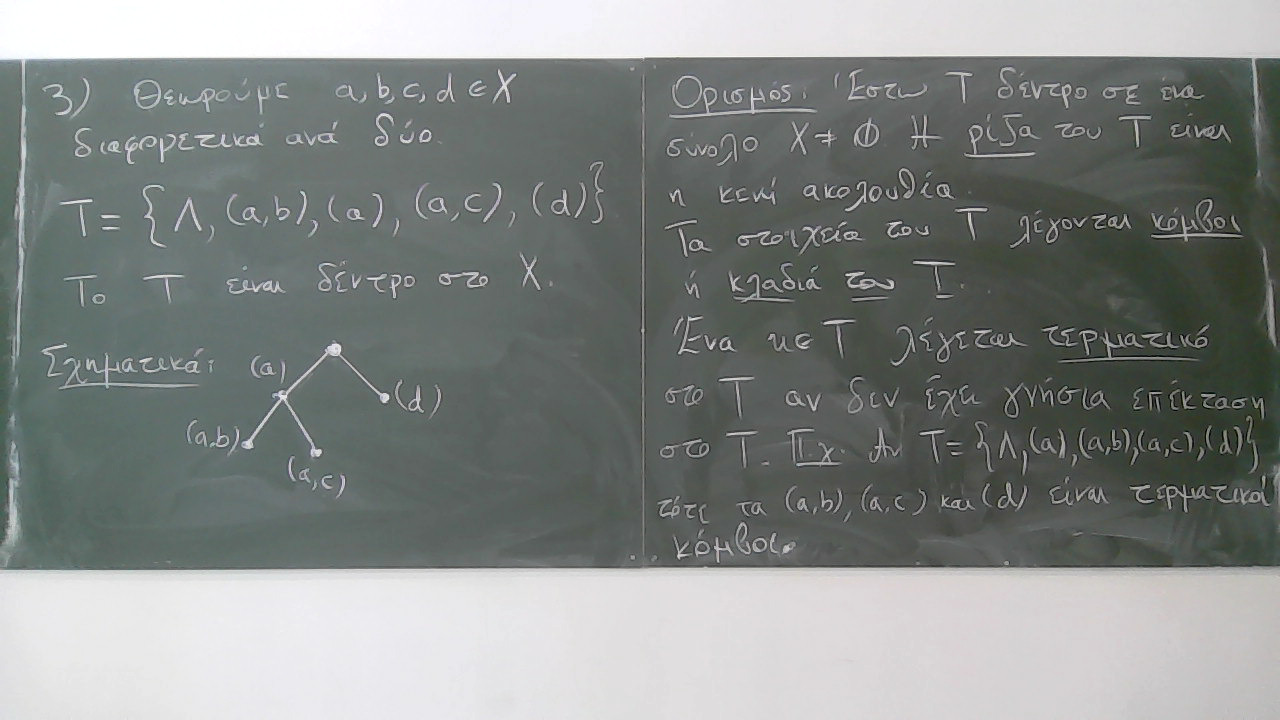 3) Θεωρούμε a,b,c,d ∈ X
διαφορετικά ανά δύο.
T = {Λ, (a,b), (a), (a,c), (d)}
Το T είναι δέντρο στο X.
Σχηματικά:
(a)
(d)
(a,b)
(a,c)
Ορισμός. Έστω T δέντρο σε ένα
σύνολο X ≠ ∅. Η ρίζα του T είναι
η κενή ακολουθία.
Τα στοιχεία του T λέγονται κόμβοι
ή κλαδιά του T.
Ένα u ∈ T λέγεται τερματικό
στο T αν δεν έχει γνήσια επέκταση
στο T. Π.χ. Αν T = {Λ, (a), (a,b), (a,c), (d)}
τότε τα (a,b), (a,c) και (d) είναι τερματικοί
κόμβοι.